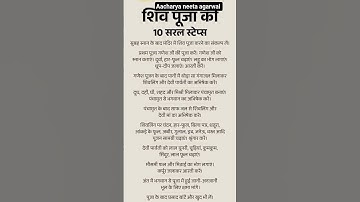 Aacharya neeta agarwal
शिव पूजा की
10 सरल स्टेप्स
सुबह स्नान के बाद मंदिर में शिव पूजा करने का संकल्प लें।
प्रथम पूज्य गणेश जी की पूजा करें। गणेश जी को
स्नान कराएं। दूर्वा, हार-फूल चढ़ाएं। लड्डू का भोग लगाएं।
धूप-दीप जलाएं। आरती करें।
गणेश पूजन के बाद पानी में थोड़ा सा गंगाजल मिलाकर
शिवलिंग और देवी पार्वती का अभिषेक करें।
दूध, दही, घी, शहद और मिश्री मिलाकर पंचामृत बनाएं।
पंचामृत से भगवान का अभिषेक करें।
पंचामृत के बाद साफ जल से शिवलिंग और
देवी मां का अभिषेक करें
शिवलिंग पर चंदन, हार-फूल, बिल्व पत्र, धतूरा,
आंकड़े के फूल, जनेऊ, गुलाल, इत्र, अबीर, चावल आदि
पूजन सामग्री चढ़ाएं। श्रृंगार करें।
देवी पार्वती को लाल चुनरी, चूड़ियां, कुमकुम,
सिंदूर, लाल फूल चढ़ाएं।
मौसमी फल और मिठाई का भोग लगाएं।
कर्पूर जलाकर आरती करें।
अंत में भगवान से पूजा में हुई जानी-अनजानी
भूल के लिए क्षमा मांगें।
पूजा के बाद प्रसाद बांटें और खुद भी लें।